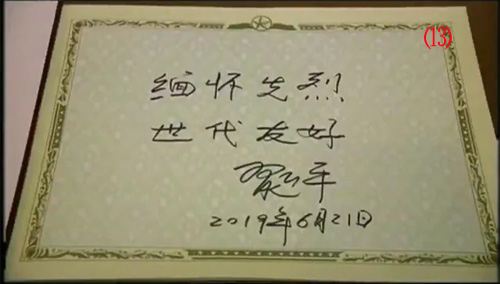 (13)
缅怀先烈
世代友好
习近平
2019年6月21日